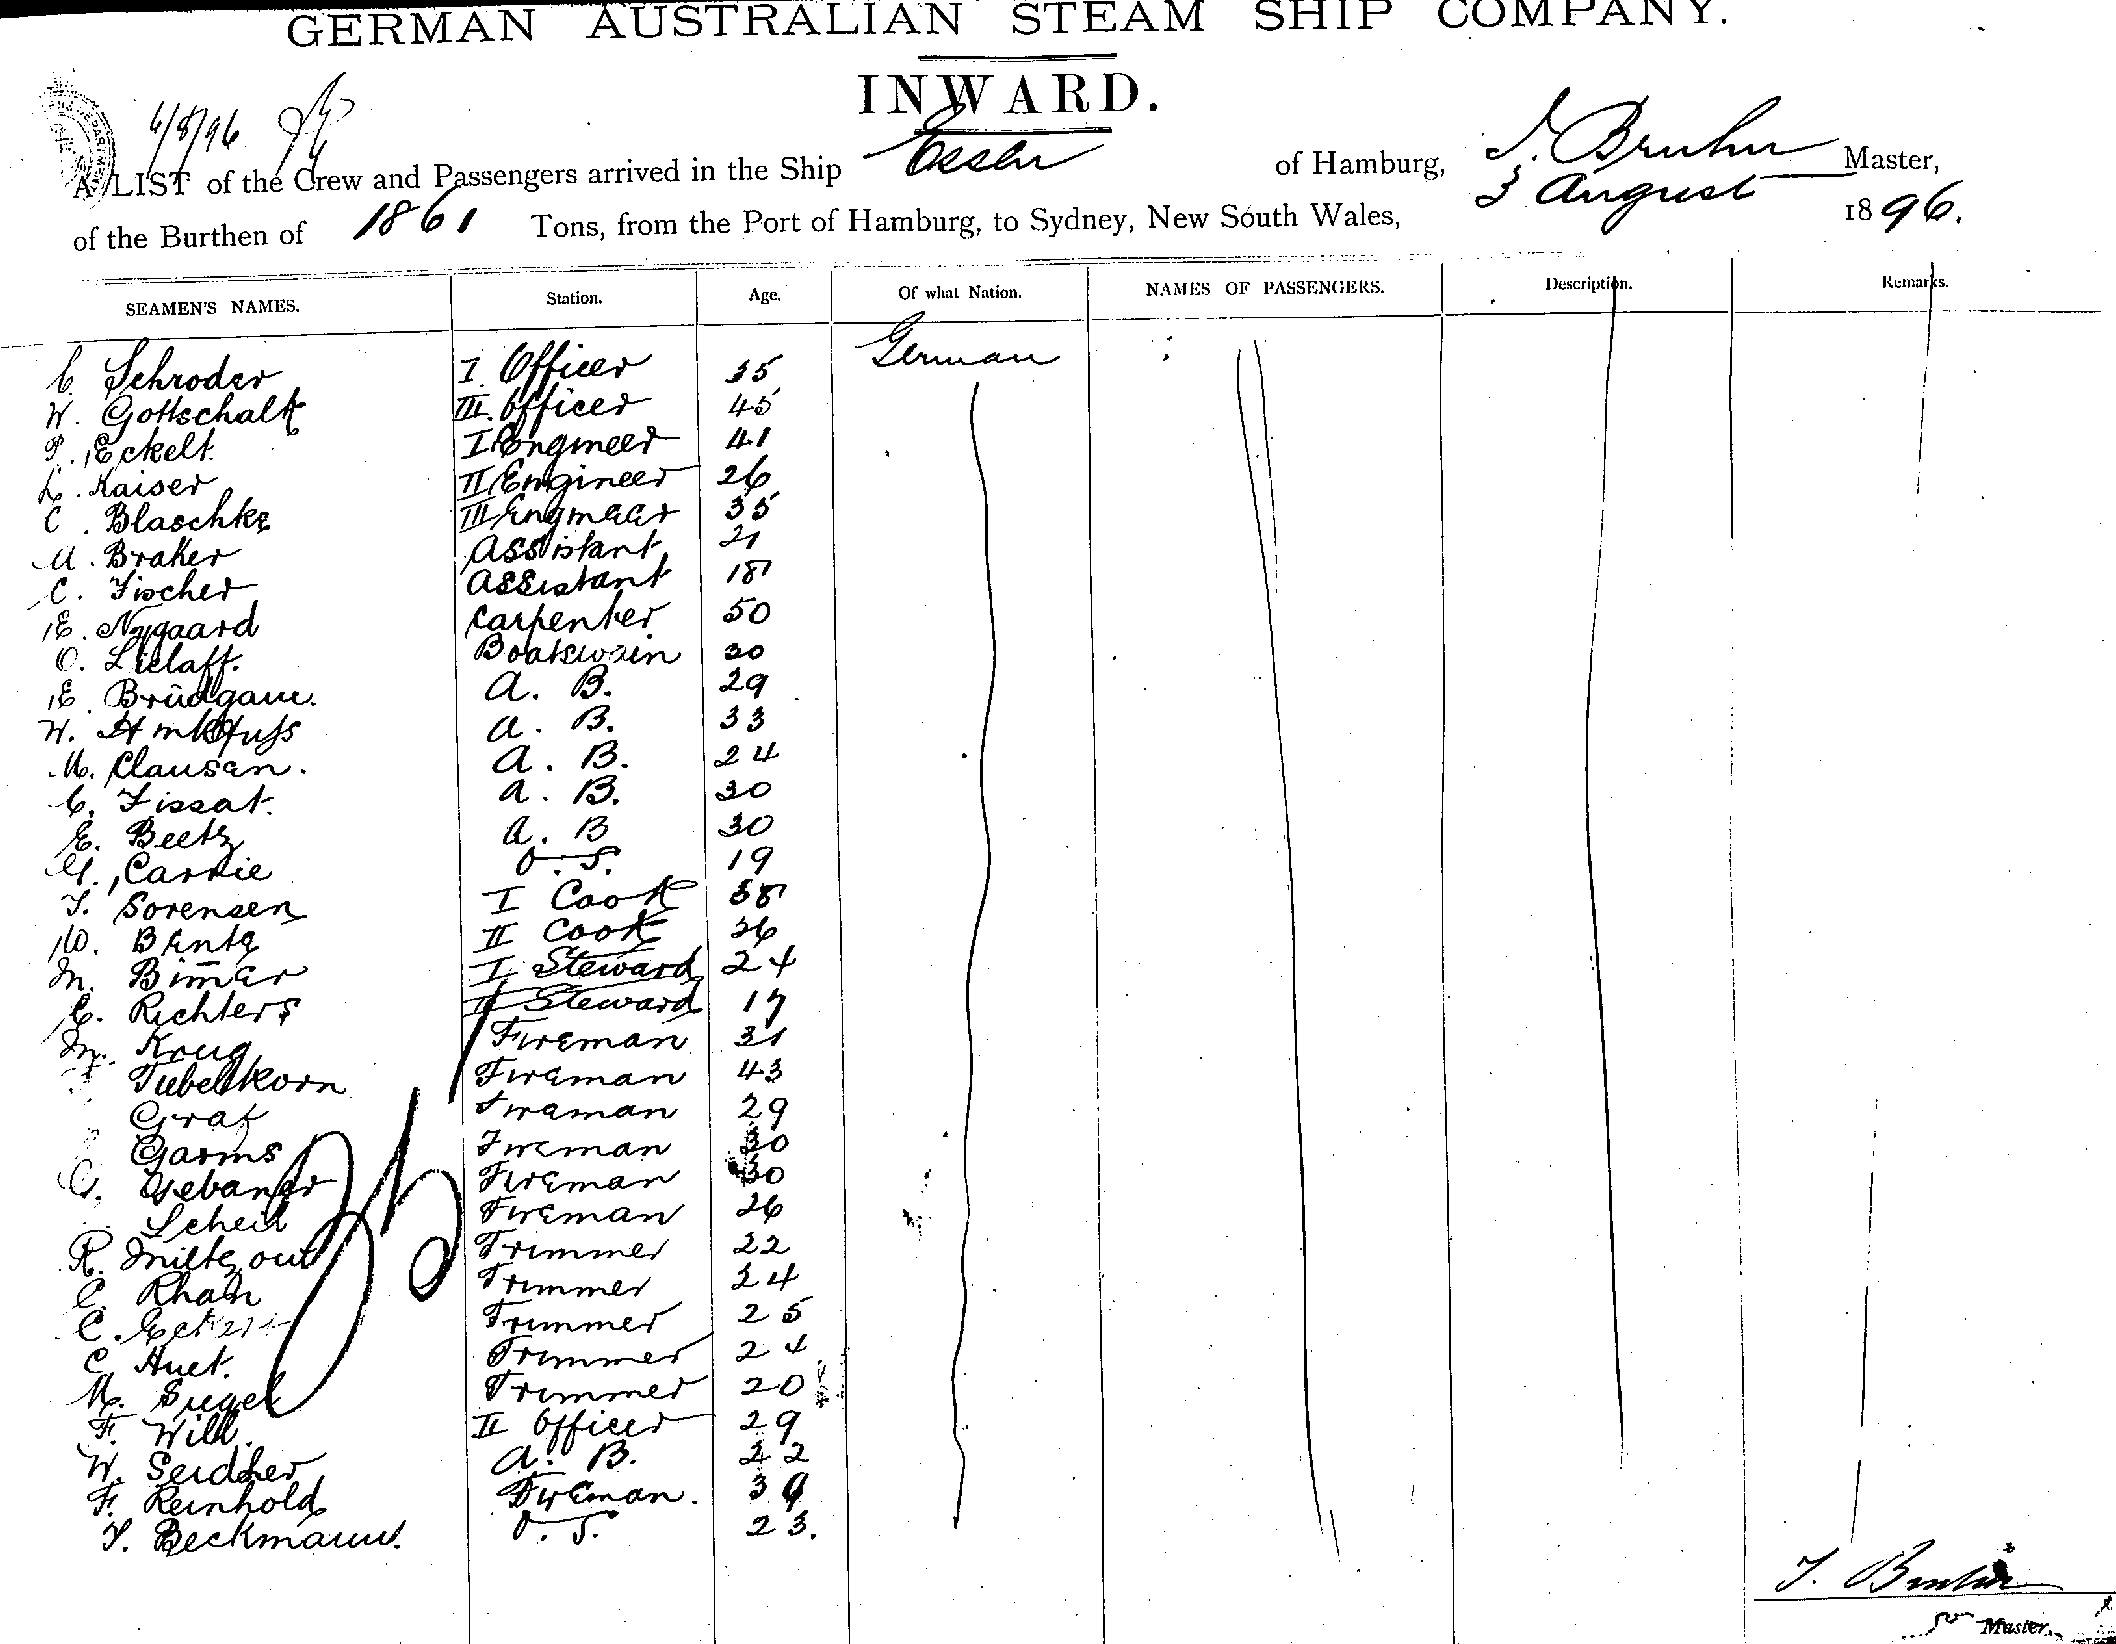 GERMAN AUSTRALIAN STEAM SHIP COMPANY.
INWARD.
6/8/96
A LIST of the Crew and Passengers arrived in the Ship Essen of Hamburg, J. Bruhn Master,
of the Burthen of 1861 Tons, from the Port of Hamburg, to Sydney, New South Wales, 3 August 1896.
SEAMEN'S NAMES. Station. Age. Of what Nation. NAMES OF PASSENGERS. Description. Remarks.
C. Schroder I Officer 35 German
W. Gottschalk III. Officer 45
P. Eckelt. I Engineer 41
L. Kaiser II Engineer 26
C. Blaschke III Engineer 35
A. Braker Assistant 21
C. Fischer Assistant 18
E. Nygaard Carpenter 50
O. Lielaff. Boatswain 30
E. Brüdgam. A. B. 29
W. A. B. 33
M. Clausen. A. B. 24
C. Fissat. A. B. 30
E. Beetz A. B 30
G. Carstie O. S. 19
J. Sorensen I Cook 38
W. Bente II Cook 26
M. Bimer I Steward 24
C. Richters II Steward 17
M. Krug Fireman 31
Tubelkorn Fireman 43
Graf Fireman 29
Garms Fireman 30
G. Gebauer Fireman 30
Scheid Fireman 26
R. Miltzout Trimmer 22
C. Rhan Trimmer 24
C. Trimmer 25
C. Huet. Trimmer 24
M. Siegel Trimmer 20
F. Will. II Officer 29
W. Seidler A. B. 22
F. Reinhold Fireman. 39
J. Beckmann. O. S. 23.
35
J. Bruhn
Master.